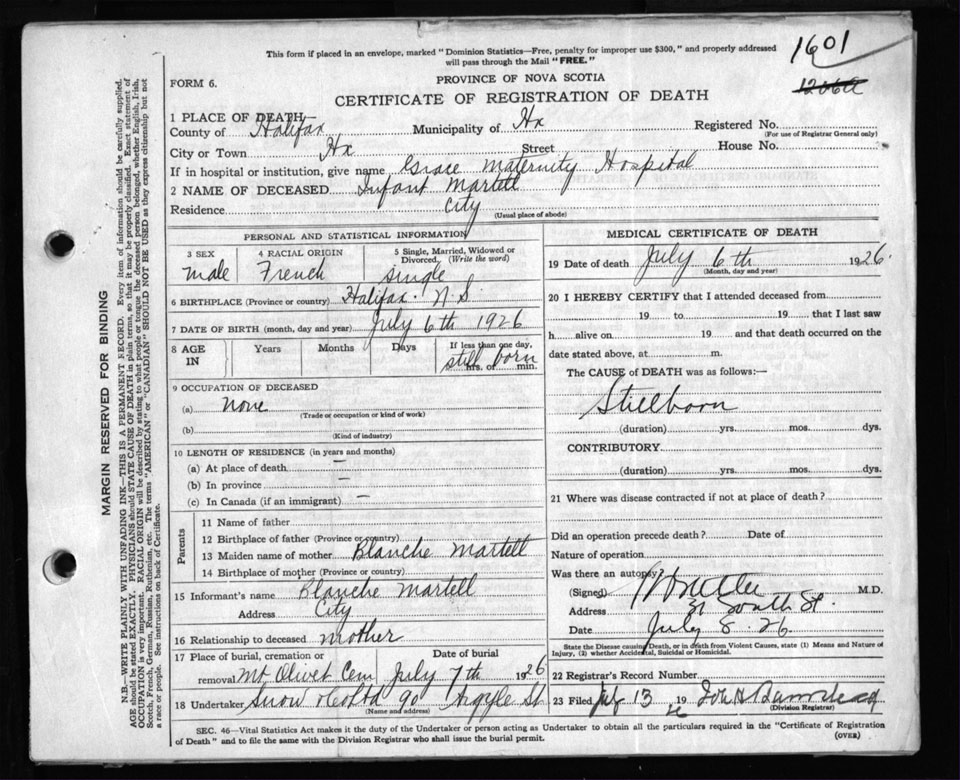 This form if placed in an envelope, marked "Dominion Statistics—Free, penalty for improper use $300," and properly addressed
will pass through the Mail "FREE."
1601
FORM 6.
PROVINCE OF NOVA SCOTIA
CERTIFICATE OF REGISTRATION OF DEATH
1 PLACE OF DEATH—
County of Halifax Municipality of Hx Registered No.
(For use of Registrar General only)
City or Town Hx Street House No.
If in hospital or institution, give name Grace Maternity Hospital
2 NAME OF DECEASED Infant Martell
Residence City
(Usual place of abode)
PERSONAL AND STATISTICAL INFORMATION
3 SEX 4 RACIAL ORIGIN 5 Single, Married, Widowed or
Divorced. (Write the word)
male French single
6 BIRTHPLACE (Province or country) Halifax. N.S.
7 DATE OF BIRTH (month, day and year) July 6th 1926
8 AGE IN Years Months Days If less than one day,
still born
hrs. or min.
9 OCCUPATION OF DECEASED
(a) none
(Trade or occupation or kind of work)
(b)
(Kind of industry)
10 LENGTH OF RESIDENCE (in years and months)
(a) At place of death —
(b) In province —
(c) In Canada (if an immigrant) —
Parents
11 Name of father
12 Birthplace of father (Province or country)
13 Maiden name of mother Blanche Martell
14 Birthplace of mother (Province or country)
15 Informant's name Blanche Martell
Address City
16 Relationship to deceased mother
17 Place of burial, cremation or Date of burial
removal Mt Olivet Cem July 7th 1926
18 Undertaker Snow & Co Ltd 90 Argyle St
(Name and address)
MEDICAL CERTIFICATE OF DEATH
19 Date of death July 6th 1926.
(Month, day and year)
20 I HEREBY CERTIFY that I attended deceased from
19 to 19 that I last saw
h alive on 19 and that death occurred on the
date stated above, at m.
The CAUSE of DEATH was as follows:—
Stillborn
(duration) yrs. mos. dys.
CONTRIBUTORY
(duration) yrs. mos. dys.
21 Where was disease contracted if not at place of death?
Did an operation precede death? Date of
Nature of operation
Was there an autopsy
(Signed) M.D.
Address 31 South St.
Date July 8. 26
State the Disease causing Death, or in death from Violent Causes, state (1) Means and Nature of
Injury, (2) whether Accidental, Suicidal or Homicidal.
22 Registrar's Record Number
23 Filed July 13 19
(Division Registrar)
SEC. 46—Vital Statistics Act makes it the duty of the Undertaker or person acting as Undertaker to obtain all the particulars required in the "Certificate of Registration
of Death" and to file the same with the Division Registrar who shall issue the burial permit.
(OVER)
MARGIN RESERVED FOR BINDING
N.B.—WRITE PLAINLY WITH UNFADING INK—THIS IS A PERMANENT RECORD. Every item of information should be carefully supplied.
AGE should be stated EXACTLY. PHYSICIANS should STATE CAUSE OF DEATH in plain terms, so that it may be properly classified. Exact statement of
OCCUPATION is very important. RACIAL ORIGIN will be described by stating to what people or tongue the deceased person belonged, whether English, Irish,
Scotch, French, German, Russian, Ruthenian, etc. The terms "AMERICAN" or "CANADIAN" SHOULD NOT BE USED as they express citizenship but not
a race or people. See instructions on back of Certificate.